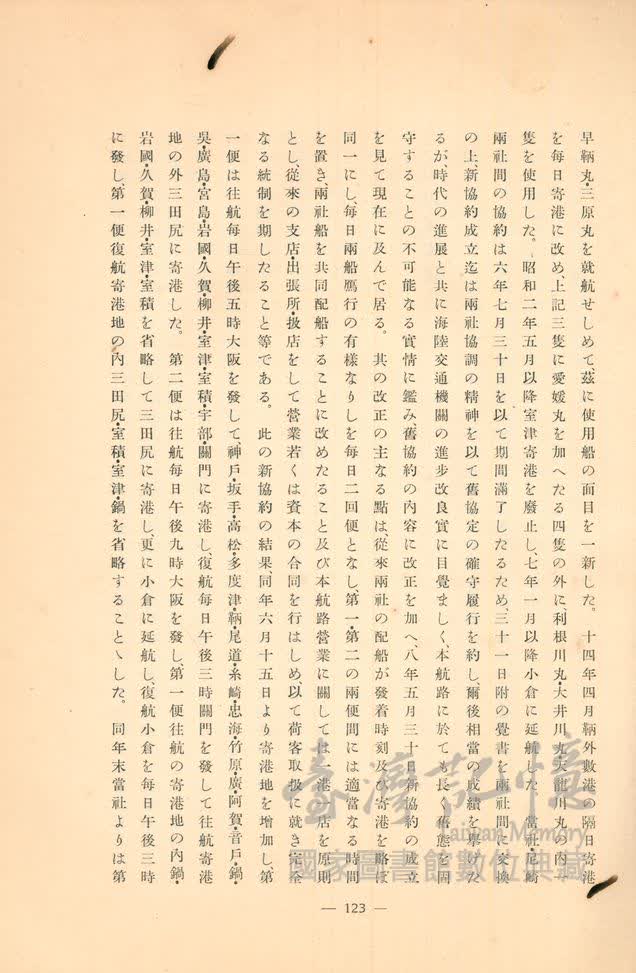 早鞆丸・三原丸を就航せしめて、茲に使用船の面目を一新した。 十四年四月鞆外數港の隔日寄港
を每日寄港に改め、上記三隻に愛媛丸を加へたる四隻の外に、利根川丸・大井川丸・天龍川丸の內一
隻を使用した。 昭和二年五月以降室津寄港を廢止し、七年一月以降小倉に延航した。 當社・尼崎
兩社間の協約は六年七月三十日を以て期間滿了したるため、三十一日附の覺書を兩社間に交換
の上、新協約成立迄は兩社協調の精神を以て舊協定の確守履行を約し、爾後相當の成績を擧げた
るが、時代の進展と共に海陸交通機關の進步改良實に目覺ましく、本航路に於ても長く舊態を固
守することの不可能なる實情に鑑み、舊協約の內容に改正を加へ、八年五月三十日新協約の成立
を見て現在に及んで居る。 其の改正の主なる點は、從來兩社の配船が發着時刻及び寄港を略ぼ
同一にし、每日兩船鴈行の有樣なりしを每日二回便となし、第一・第二の兩便間には適當なる時間
を置き、兩社船を共同配船することに改めたること及び本航路營業に關しては一港一店を原則
とし、從來の支店・出張所・扱店をして營業若くは資本の合同を行はしめ、以て荷客取扱に就き完全
なる統制を期したること等である。 此の新協約の結果、同年六月十五日より寄港地を增加し、第
一便は往航每日午後五時大阪を發して、神戶・坂手・高松・多度津・鞆・尾道・糸崎・忠海・竹原・廣・阿賀・音戶・鍋・
吳・廣島・宮島・岩國・久賀・柳井・室津・室積・宇部・關門に寄港し、復航每日午後三時關門を發して往航寄港
地の外三田尻に寄港した。 第二便は往航每日午後九時大阪を發し、第一便往航の寄港地の內鍋・
岩國・久賀・柳井・室津・室積を省略して三田尻に寄港し、更に小倉に延航し、復航小倉を每日午後三時
に發し、第一便復航寄港地の內三田尻・室積・室津・鍋を省略することゝした。 同年末當社よりは第
— 123 —
臺灣記憶
Taiwan Memory
國家圖書館數位典藏